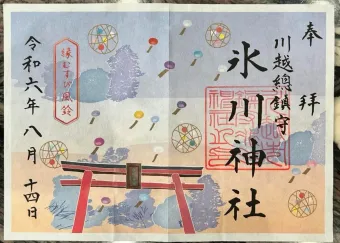 奉拝
川越總鎮守
氷川神社
縁むすび風鈴
令和六年八月十四日